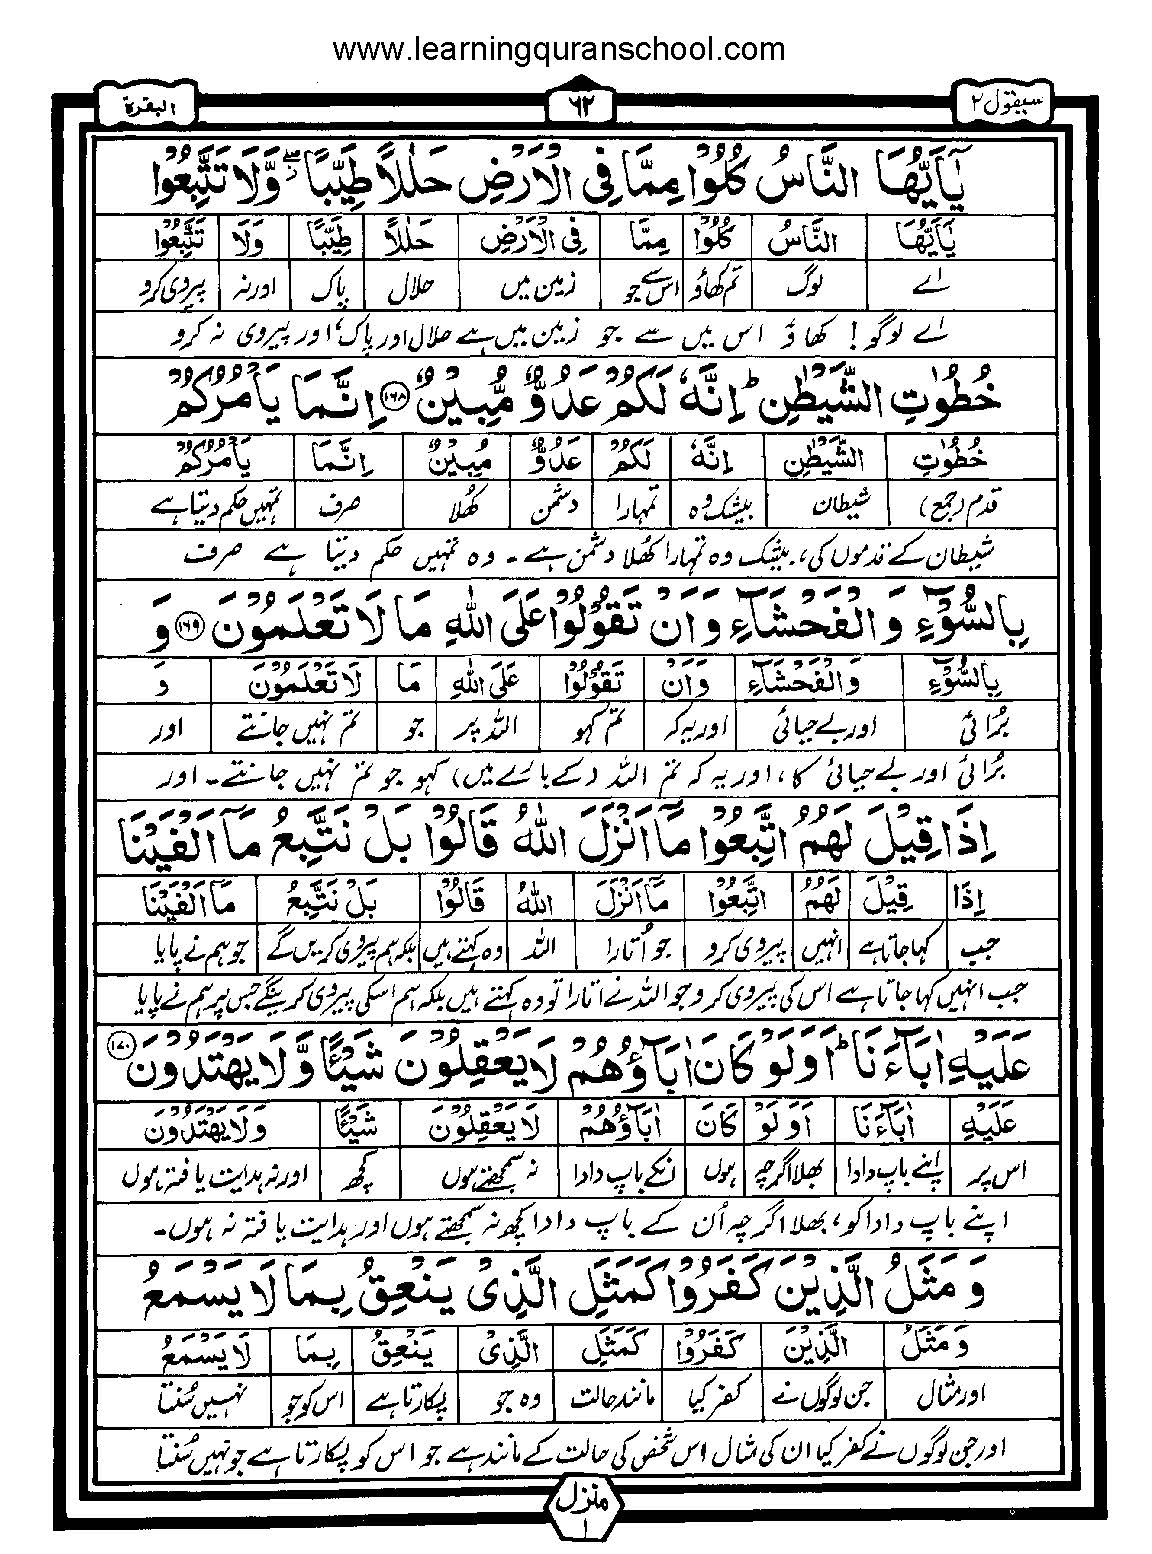 www.learningquranschool.com
سيقول ٢ ٦٢ البقرة
يٰٓاَيُّهَا النَّاسُ كُلُوْا مِمَّا فِى الْاَرْضِ حَلٰلًا طَيِّبًا ۖ وَّلَا تَتَّبِعُوْا
يٰٓاَيُّهَا النَّاسُ كُلُوْا مِمَّا فِى الْاَرْضِ حَلٰلًا طَيِّبًا وَلَا تَتَّبِعُوْا
اے لوگ تم کھاؤ اس سے جو زمین میں حلال پاک اور نہ پیروی کرو
اے لوگو! کھاؤ اس میں سے جو زمین میں ہے حلال اور پاک، اور پیروی نہ کرو
خُطُوٰتِ الشَّيْطٰنِ ؕ اِنَّهٗ لَكُمْ عَدُوٌّ مُّبِيْنٌ ١٦٨ اِنَّمَا يَاْمُرُكُمْ
خُطُوٰتِ الشَّيْطٰنِ اِنَّهٗ لَكُمْ عَدُوٌّ مُبِيْنٌ اِنَّمَا يَاْمُرُكُمْ
قدم (جمع) شیطان بیشک وہ تمہارا دشمن کھُلا صرف تمہیں حکم دیتا ہے
شیطان کے قدموں کی، بیشک وہ تمہارا کھُلا دشمن ہے۔ وہ تمہیں حکم دیتا ہے صرف
بِالسُّوْٓءِ وَ الْفَحْشَآءِ وَ اَنْ تَقُوْلُوْا عَلَى اللّٰهِ مَا لَا تَعْلَمُوْنَ ١٦٩ وَ
بِالسُّوْٓءِ وَالْفَحْشَآءِ وَاَنْ تَقُوْلُوْا عَلَى اللّٰهِ مَا لَا تَعْلَمُوْنَ وَ
بُرائی اور بے حیائی اور یہ کہ تم کہو اللہ پر جو تم نہیں جانتے اور
بُرائی اور بے حیائی کا، اور یہ کہ تم اللہ (کے بارے میں) کہو جو تم نہیں جانتے۔ اور
اِذَا قِيْلَ لَهُمُ اتَّبِعُوْا مَآ اَنْزَلَ اللّٰهُ قَالُوْا بَلْ نَتَّبِعُ مَآ اَلْفَيْنَا
اِذَا قِيْلَ لَهُمُ اتَّبِعُوْا مَآ اَنْزَلَ اللّٰهُ قَالُوْا بَلْ نَتَّبِعُ مَآ اَلْفَيْنَا
جب کہا جاتا ہے انہیں پیروی کرو جو اُتارا اللہ وہ کہتے ہیں بلکہ ہم پیروی کریں گے جو ہم نے پایا
جب انہیں کہا جاتا ہے اس کی پیروی کرو جو اللہ نے اتارا تو وہ کہتے ہیں بلکہ ہم اسکی پیروی کرینگے جس پر ہم نے پایا
عَلَيْهِ اٰبَآءَنَا ؕ اَوَلَوْ كَانَ اٰبَآؤُهُمْ لَا يَعْقِلُوْنَ شَيْـًٔا وَّلَا يَهْتَدُوْنَ ١٧٠
عَلَيْهِ اٰبَآءَنَا اَوَلَوْ كَانَ اٰبَآؤُهُمْ لَا يَعْقِلُوْنَ شَيْـًٔا وَلَا يَهْتَدُوْنَ
اس پر اپنے باپ دادا بھلا اگرچہ ہوں انکے باپ دادا نہ سمجھتے ہوں کچھ اور نہ ہدایت یافتہ ہوں
اپنے باپ دادا کو، بھلا اگرچہ اُن کے باپ دادا کچھ نہ سمجھتے ہوں اور ہدایت یافتہ نہ ہوں۔
وَ مَثَلُ الَّذِيْنَ كَفَرُوْا كَمَثَلِ الَّذِىْ يَنْعِقُ بِمَا لَا يَسْمَعُ
وَ مَثَلُ الَّذِيْنَ كَفَرُوْا كَمَثَلِ الَّذِىْ يَنْعِقُ بِمَا لَا يَسْمَعُ
اور مثال جن لوگوں نے کفر کیا مانند حالت وہ جو پکارتا ہے اس کو جو نہیں سُنتا
اور جن لوگوں نے کفر کیا ان کی مثال اس شخص کی حالت کے مانند ہے جو اس کو پکارتا ہے جو نہیں سُنتا
منزل
١